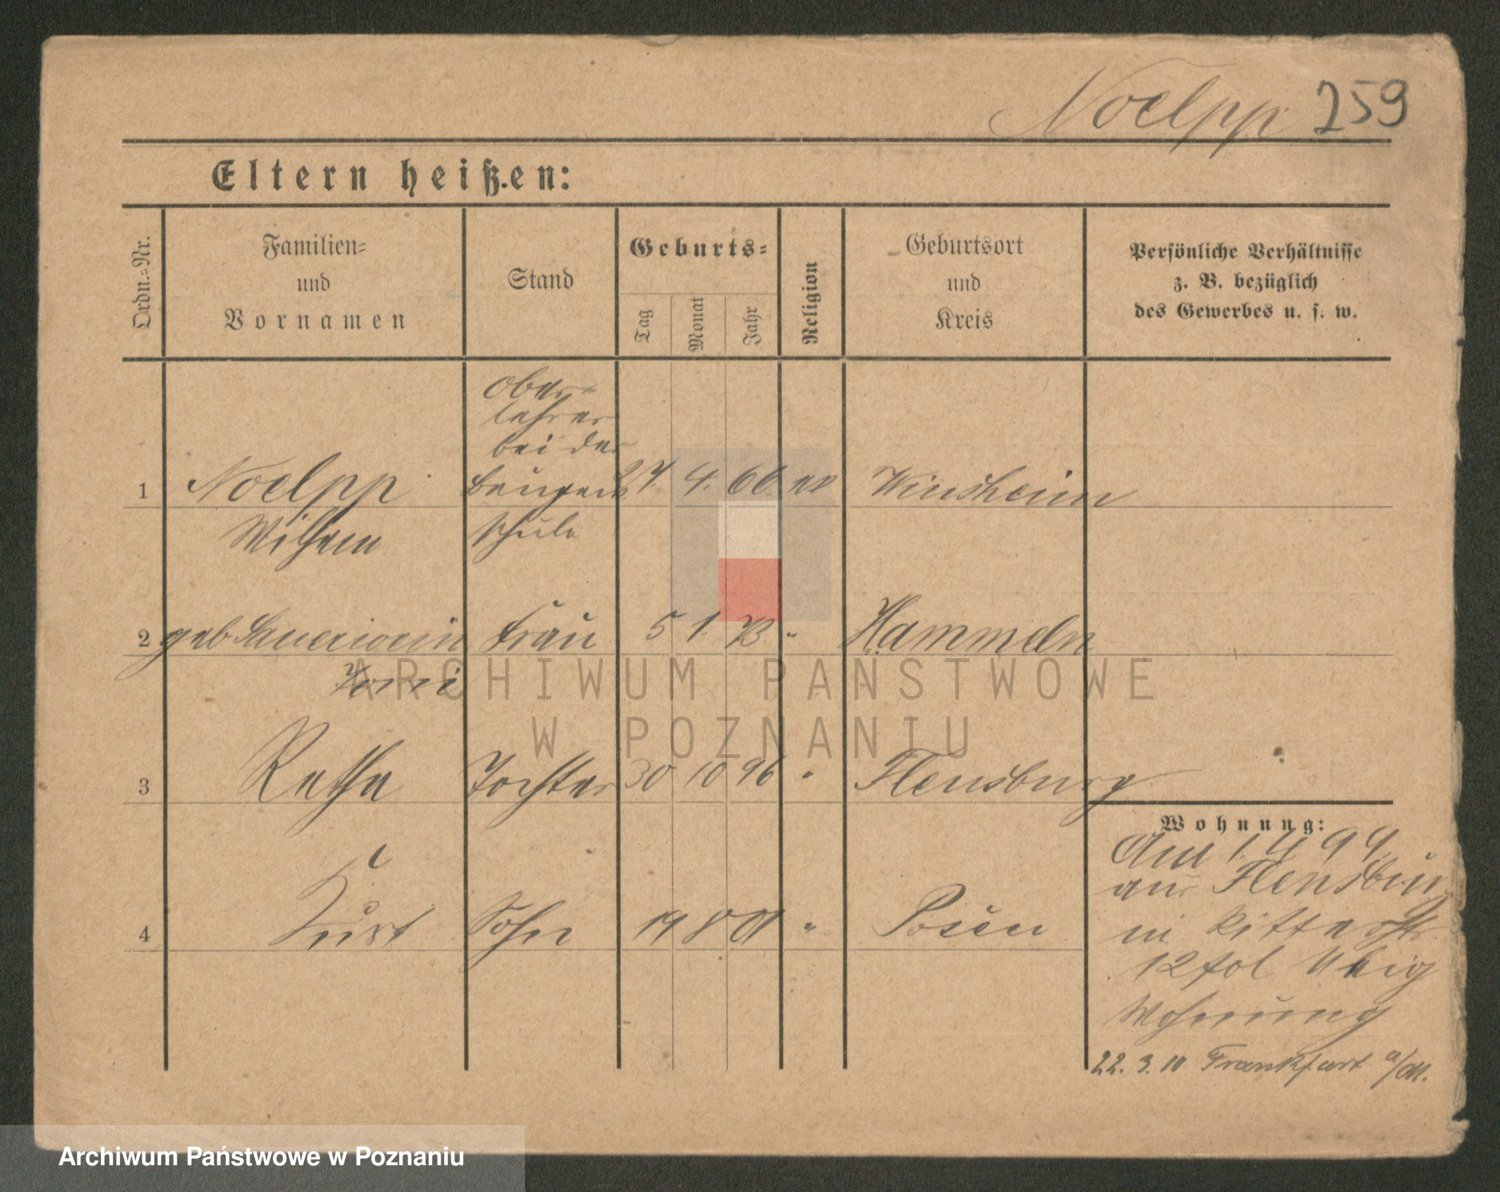 Noelpp 259
Eltern heißen:
Ordn.-Nr.
Familien-
und
Vornamen
Stand
Geburts-
Tag
Monat
Jahr
Religion
Geburtsort
und
Kreis
Persönliche Verhältnisse
z. B. bezüglich
des Gewerbes u. s. w.
Ober-
lehrer
bei der
1 Noelpp 4. ev Winsheim
Wilhelm schule
2 geb Frau 5 1. 73 " Hammeln
Toni
ARCHIWUM PAŃSTWOWE
W POZNANIU
3 Tochter 30 10 96 " Flensburg
Wohnung:
Am 1. 4 99
aus Flensburg
4 Kurt Sohn 19 8 01 " Posen
in Ritterstr
12
Wohnung
22. 3. 10 Frankfurt a/M.
Archiwum Państwowe w Poznaniu